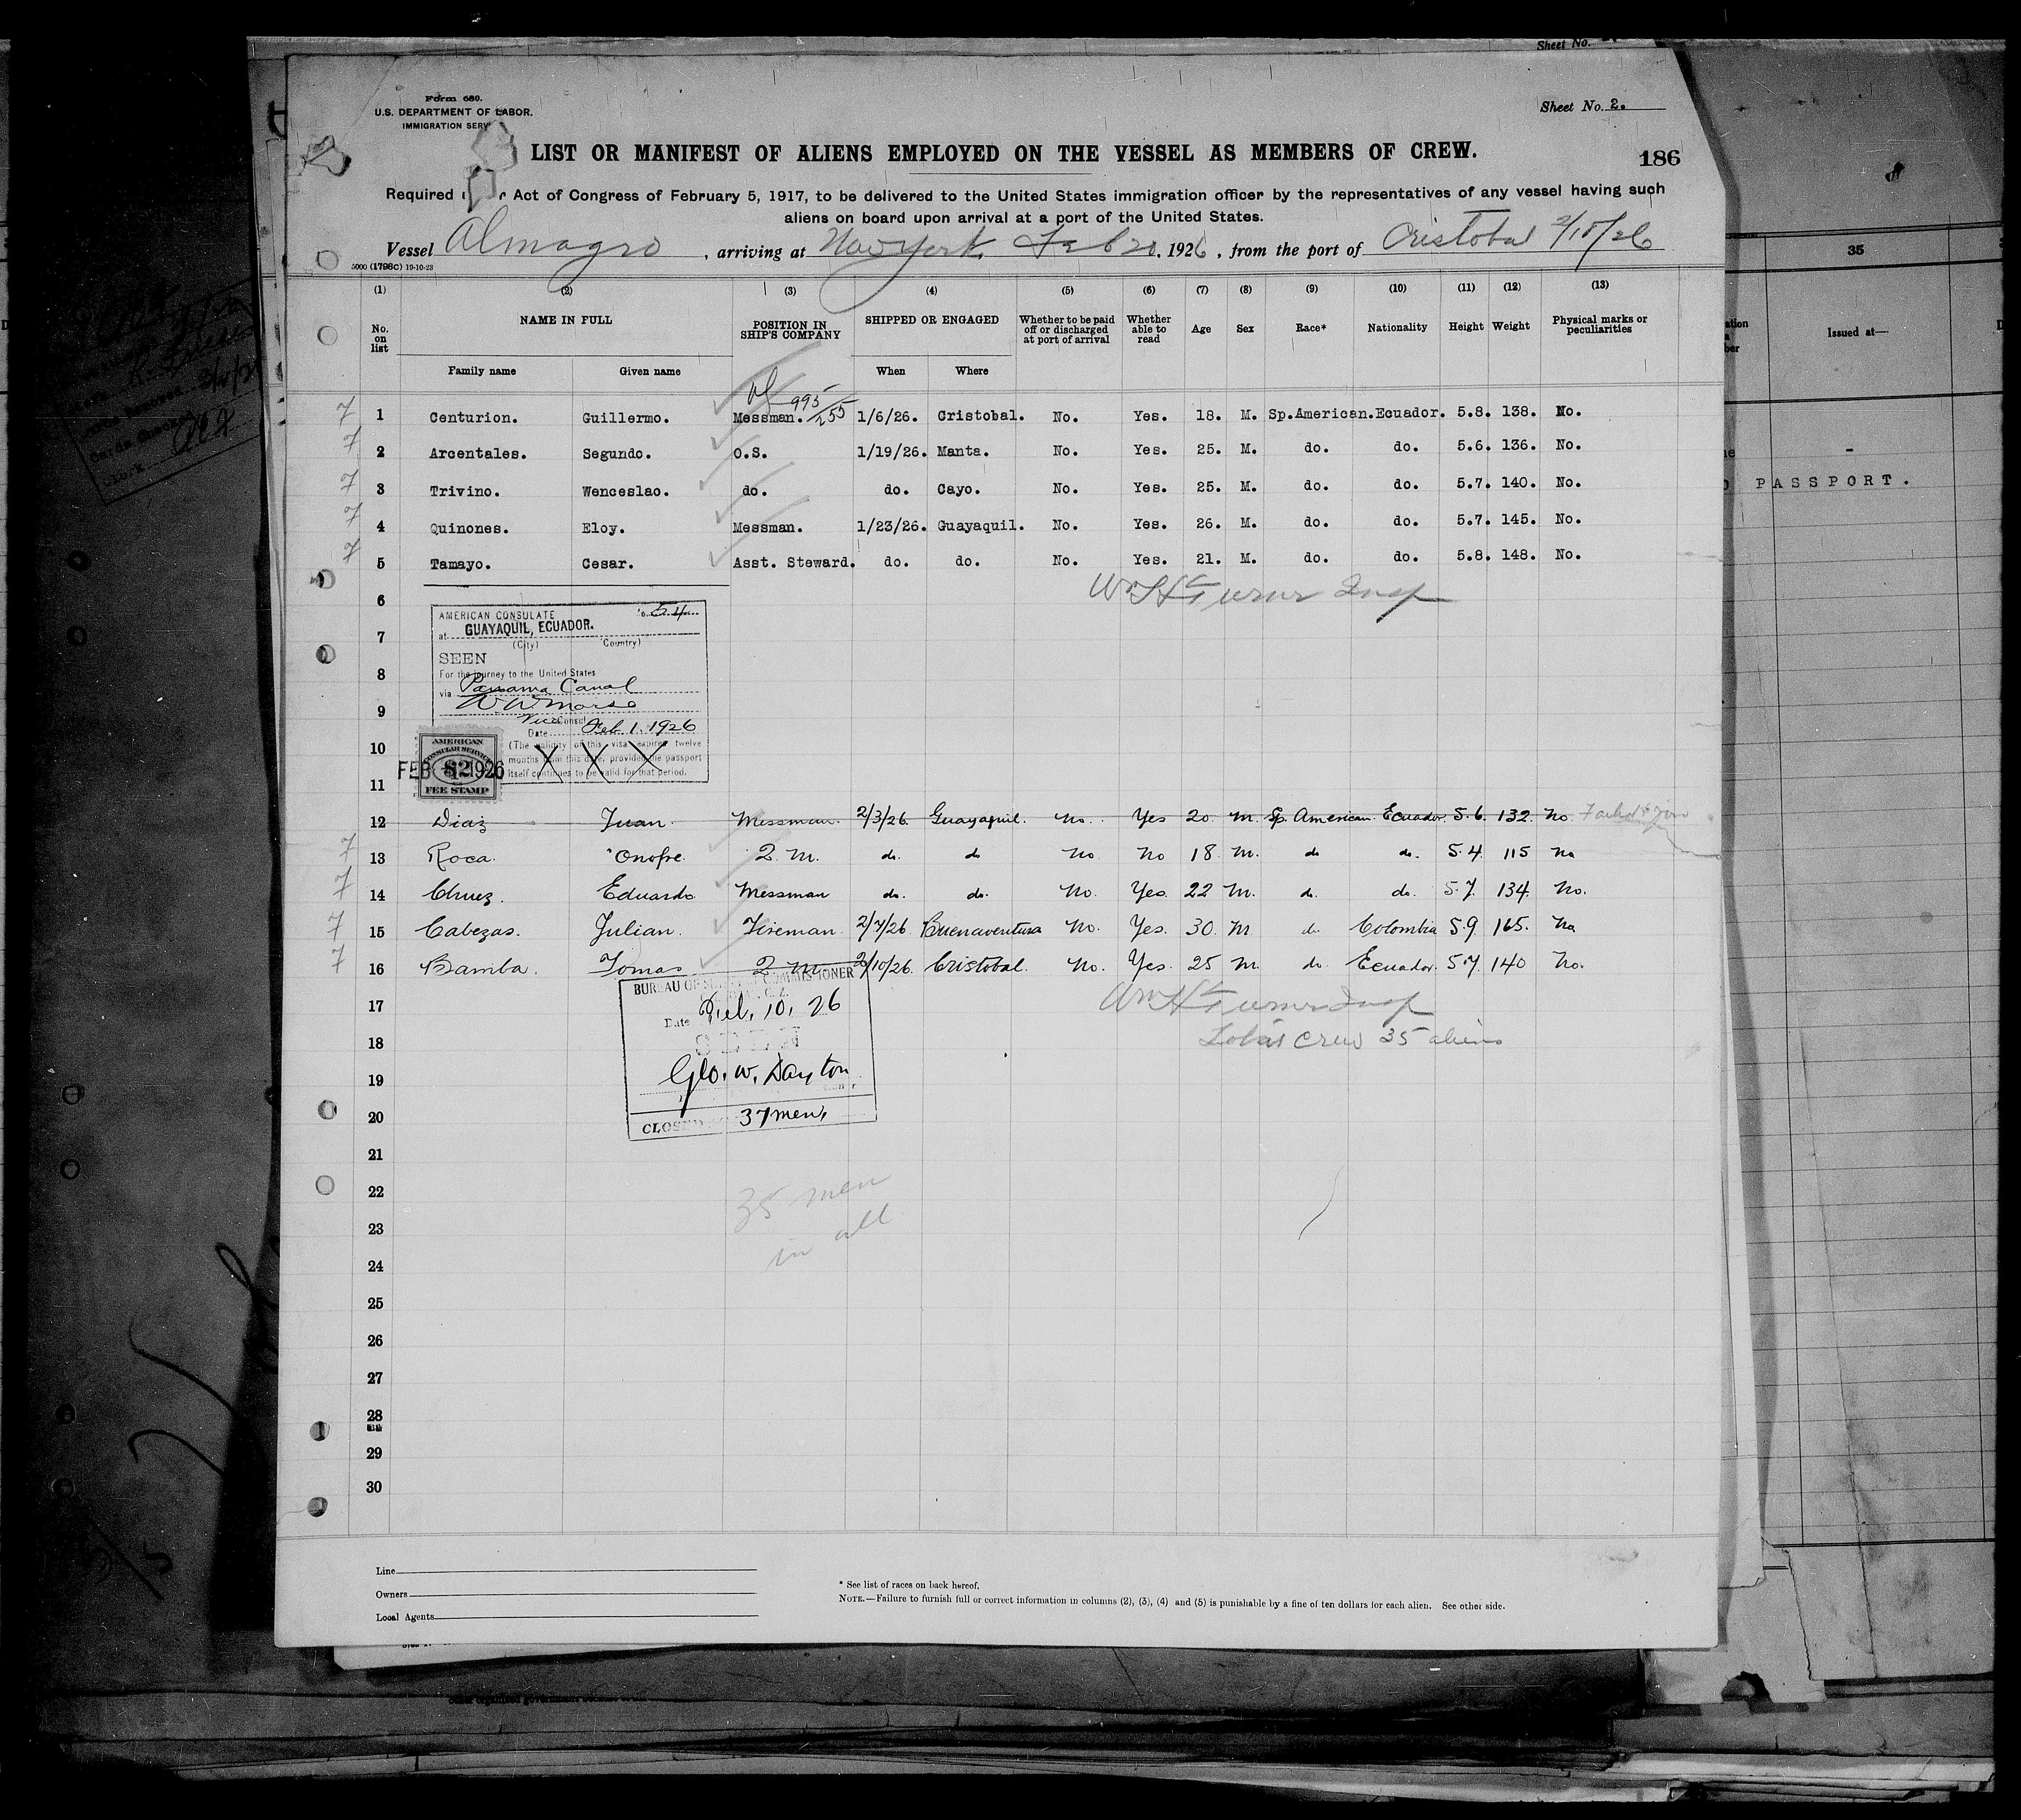 Sheet No.
Form 680.
U.S. DEPARTMENT OF LABOR.
IMMIGRATION SERV
Sheet No. 2.
LIST OR MANIFEST OF ALIENS EMPLOYED ON THE VESSEL AS MEMBERS OF CREW.
186
Required r Act of Congress of February 5, 1917, to be delivered to the United States immigration officer by the representatives of any vessel having such
aliens on board upon arrival at a port of the United States.
Vessel Almagro, arriving at New York Feb 20, 1926, from the port of Cristobal
5000 (1798C) 19-10-23
(1) (2) (3) (4) (5) (6) (7) (8) (9) (10) (11) (12) (13)
No. on list NAME IN FULL POSITION IN SHIP'S COMPANY SHIPPED OR ENGAGED Whether to be paid off or discharged at port of arrival Whether able to read Age Sex Race* Nationality Height Weight Physical marks or peculiarities
Family name Given name When Where
995/255
7 1 Centurion. Guillermo. Messman. 1/6/26. Cristobal. No. Yes. 18. M. Sp.American. Ecuador. 5.8. 138. No.
7 2 Arcentales. Segundo. O.S. 1/19/26. Manta. No. Yes. 25. M. do. do. 5.6. 136. No.
7 3 Trivino. Wenceslao. do. do. Cayo. No. Yes. 25. M. do. do. 5.7. 140. No.
7 4 Quinones. Eloy. Messman. 1/23/26. Guayaquil. No. Yes. 26. M. do. do. 5.7. 145. No.
7 5 Tamayo. Cesar. Asst. Steward. do. do. No. Yes. 21. M. do. do. 5.8. 148. No.
Wm H Turner Insp
6
AMERICAN CONSULATE
at GUAYAQUIL, ECUADOR.
(City) (Country)
7
SEEN
8
For the journey to the United States
via Panama Canal
9
W. W. Morse
Vice Consul
Date Feb. 1. 1926
10
(The validity of this visa expires twelve
months from this date, provided the passport
itself continues to be valid for that period.
X X X
AMERICAN
CONSULAR SERVICE
$2
FEE STAMP
FEB 1926
11
12 Diaz Juan. Messman. 2/3/26. Guayaquil. No. Yes 20. M. Sp. American. Ecuador. 5.6. 132. No. Failed to join
7 13 Roca. Onofre. 2 M. do. do No No 18 M. do do. 5.4. 115 No
7 14 Chuez. Eduardo. Messman do. do. No. Yes. 22 M. do. do. 5.7. 134. No.
7 15 Cabezas. Julian. Fireman. 2/7/26 Buenaventura No. Yes. 30. M do Colombia 5.9. 165. No
7 16 Bamba. Tomas 2 M 2/10/26. Cristobal. No. Yes. 25 M. do Ecuador. 5.7. 140 No.
17
Wm H Turner Insp
Date Feb. 10, 26
18
Total crew 35 aliens
SEEN
19
Geo. W. Dayton
20
CLOSED 37 men,
21
22
35 men
23
in all
24
25
26
27
28
29
30
Line
Owners
Local Agents
* See list of races on back hereof.
NOTE.—Failure to furnish full or correct information in columns (2), (3), (4) and (5) is punishable by a fine of ten dollars for each alien. See other side.
35
Issued at—
PASSPORT.